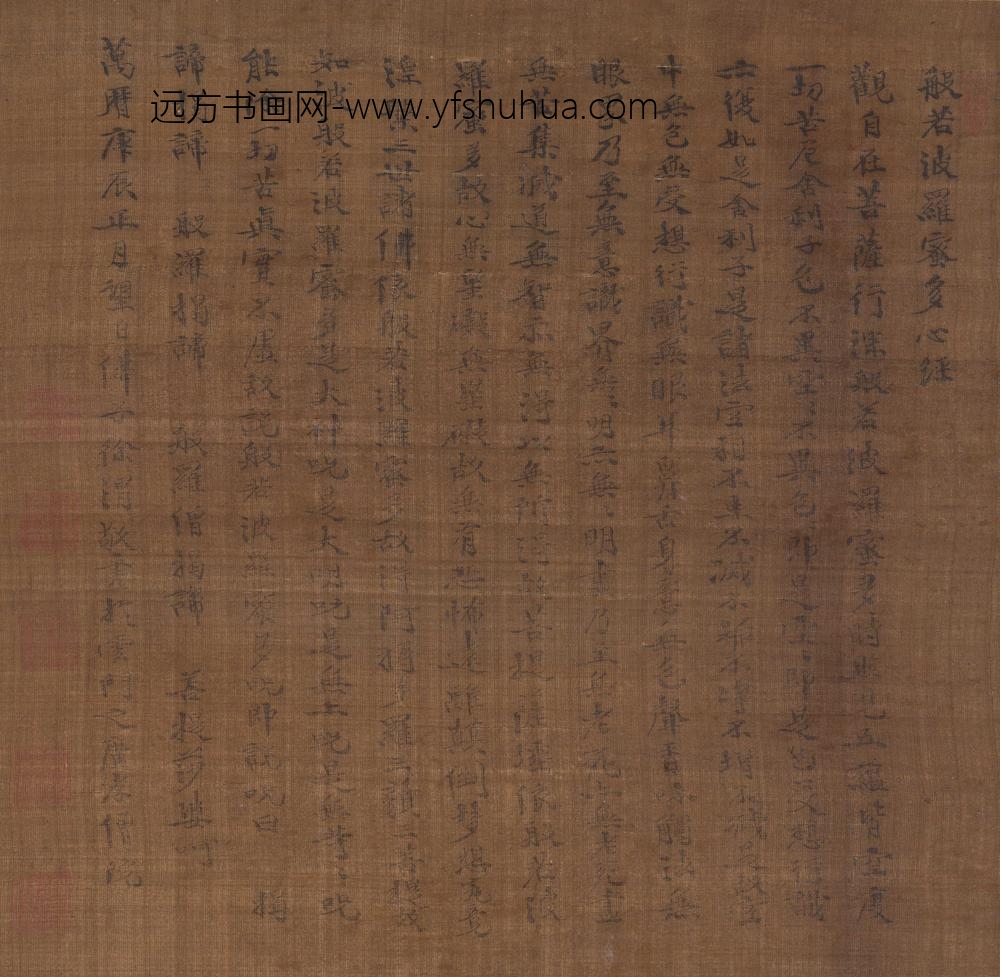 般若波羅蜜多心経
觀自在菩薩行深般若波羅蜜多時照見五蘊皆空度
一切苦厄舍利子色不異空〻不異色色即是空〻即是色受想行識
亦復如是舍利子是諸法空相不生不滅不垢不淨不增不減是故空
中無色無受想行識無眼耳鼻舌身意無色聲香味觸法無
眼界乃至無意識界無〻明亦無〻明盡乃至無老死亦無老死盡
無苦集滅道無智亦無得以無所得故菩提薩埵依般若波
羅蜜多故心無罣礙無罣礙故無有恐怖遠離顛倒夢想究竟
涅槃三世諸佛依般若波羅蜜多故得阿耨多羅三藐三菩提故
知波般若波羅蜜多是大神咒是大明咒是無上咒是無等〻咒
能除一切苦真實不虛故說般若波羅蜜多咒即說咒曰 揭
諦揭諦 般羅揭諦 般羅僧揭諦 菩提莎婆呵
萬曆庚辰正月望日佛子徐渭敬書於雲門之廣孝僧院
远方书画网-www.yfshuhua.com